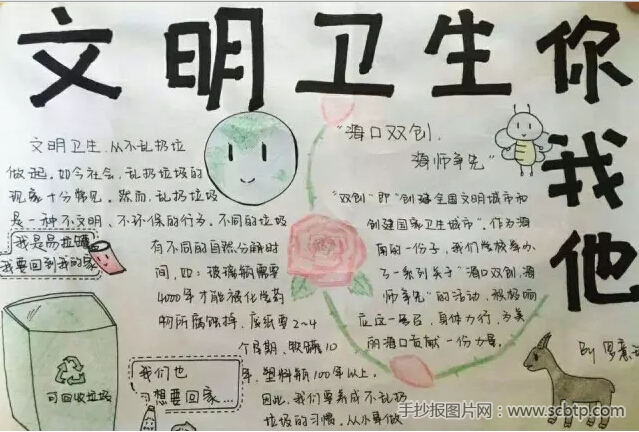 文明卫生你我他
文明卫生，从不乱扔垃
做起。如今社会，乱扔垃圾的
现象十分常见。然而，乱扔垃圾
是一种不文明、不环保的行为。不同的垃圾
有不同的自然分解时
间，如：玻璃瓶需要
4000年才能被化学药
啊所腐蚀掉，废纸要2~4
个星期，软罐10
年，塑料瓶100年以上。
因此，我们要养成不乱扔
垃圾的习惯，从小事做
我是易拉罐
我要回到我的家
可回收垃圾
我们也
想要回家...
"海口双创，
海师争先"
"双创"即"创建全国文明城市和
创建国家卫生城市"。作为海
南的一份子，我们学校举办
了一系列关于"海口双创，海
师争先"的活动，积极响
应这一号召，身体力行，为美
丽海口贡献一份力量。
By
手抄报图片网：www.scbtp.com